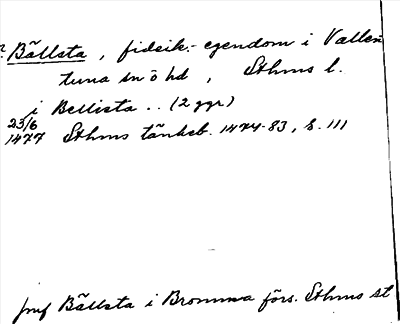 ? Bällsta, fideik.-egendom i Vallen
tuna sn o hd, Sthms l.
i Bellista .. (2 ggr)
23/6 1477 Sthms tänkeb. 1474-83, s. 111
jmf Bällsta i Bromma förs. Sthms st